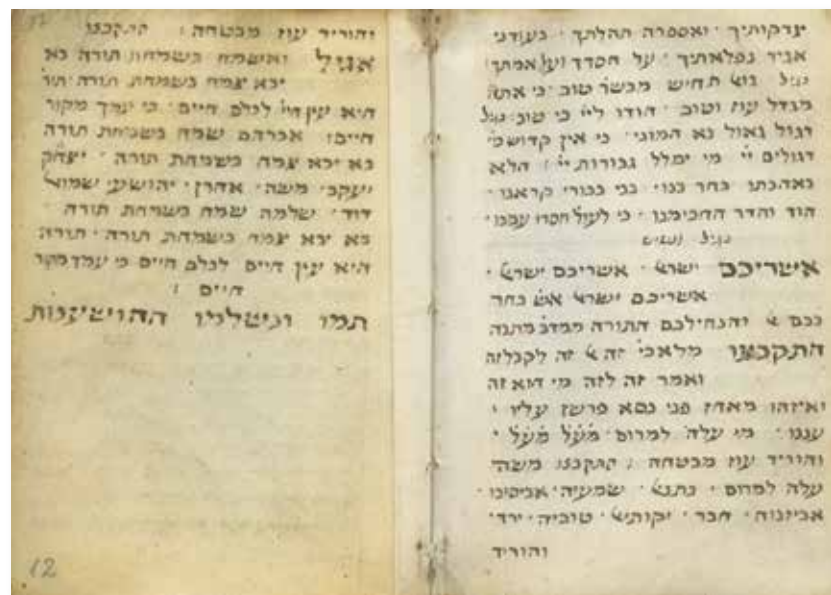 צדקותיך · ואספרה תהלתך · בעודני
אגיד נפלאתיך · על חסדך ועל אמתך
בגיל בוא תחיש מבשר טוב · כי אתה
מגדל עוז וטוב · הודו לײ כי טוב בגיל
דגול גאול נא המוני · כי אין קדוש
דגולים ײ מי ימלל גבורות ײ : הלא
באהבתו בחר בנו · בני בכורי קראנו ·
הוד והדר · כי לעול
אשריכם ישראל · אשריכם ישראל ·
אשריכם ישראל אשר בחר
בכם אל והנחילכם התורה ממדבר מתנה
התקבצו מלאכי זה אל זה לקבל זה
ואמר זה לזה מי הוא זה
ואיזהו מאחז פני כסא פרשז עליו
עננו · מי עלה למרום מעל מעל ·
והוריד עוז מבטחה : התקבצו משה
עלה למרום · נתנאל שמעיה · אביסופו
אביזנוח · חבר · יקותיאל טוביה ירד ·
והוריד
והוריד עוז מבטחה : התקבצו
אגיל ואשמח בשמחת תורה בא
יבא צמח בשמחת תורה תור
היא עץ חיי לכלם חיים · כי עמך מקור
חיים : אברהם שמח בשמחת תורה
בא יבא צמח בשמחת תורה · יצחק
יעקב · משה · אהרן · יהושע · שמואל
דוד · שלמה שמח בשמחת תורה
בא יבא צמח בשמחת תורה · תורה
היא עץ חיים לכלם חיים כי עמך מקור
חיים :
תמו ונשלמו ההושענות
12